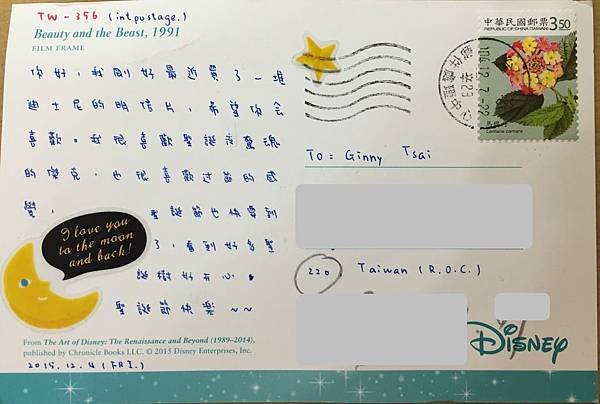 TW-356 (int postage.)
Beauty and the Beast, 1991
FILM FRAME
你好,我剛好最近買了一堆
迪士尼的明信片,希望你會
喜歡。我很喜歡聖誕夜驚魂
的傑克,也很喜歡过節的感
覺,聖誕節也快要到
了,看到好多聖
誕樹好开心。
聖誕節快樂~~
I love you
to the moon
and back!
From The Art of Disney: The Renaissance and Beyond (1989–2014),
published by Chronicle Books LLC. © 2015 Disney Enterprises, Inc.
2015.12.4 (FRI.)
中華民國郵票 3.50
REPUBLIC OF CHINA (TAIWAN)
Lantana camara
104.12.7-22
To: Ginny Tsai
220 Taiwan (R.O.C.)
Disney